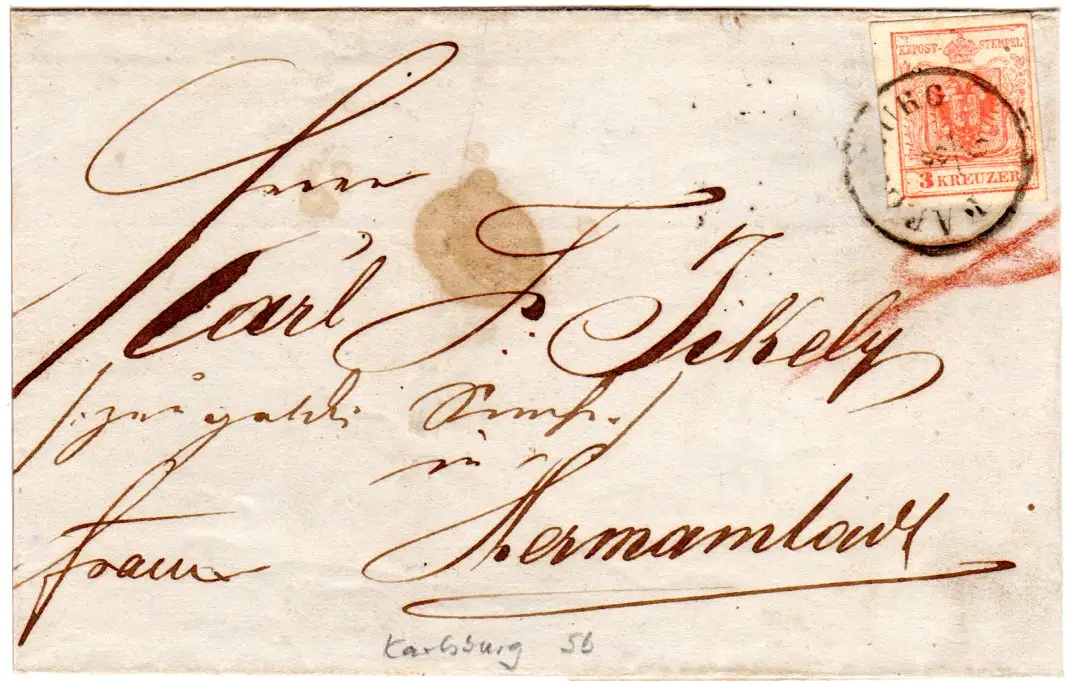 K.K.POST-STEMPEL
3 KREUZER
KARLSBURG
Herrn
Carl F. Jikely
in
Hermannstadt
franco
Karlsburg Sb